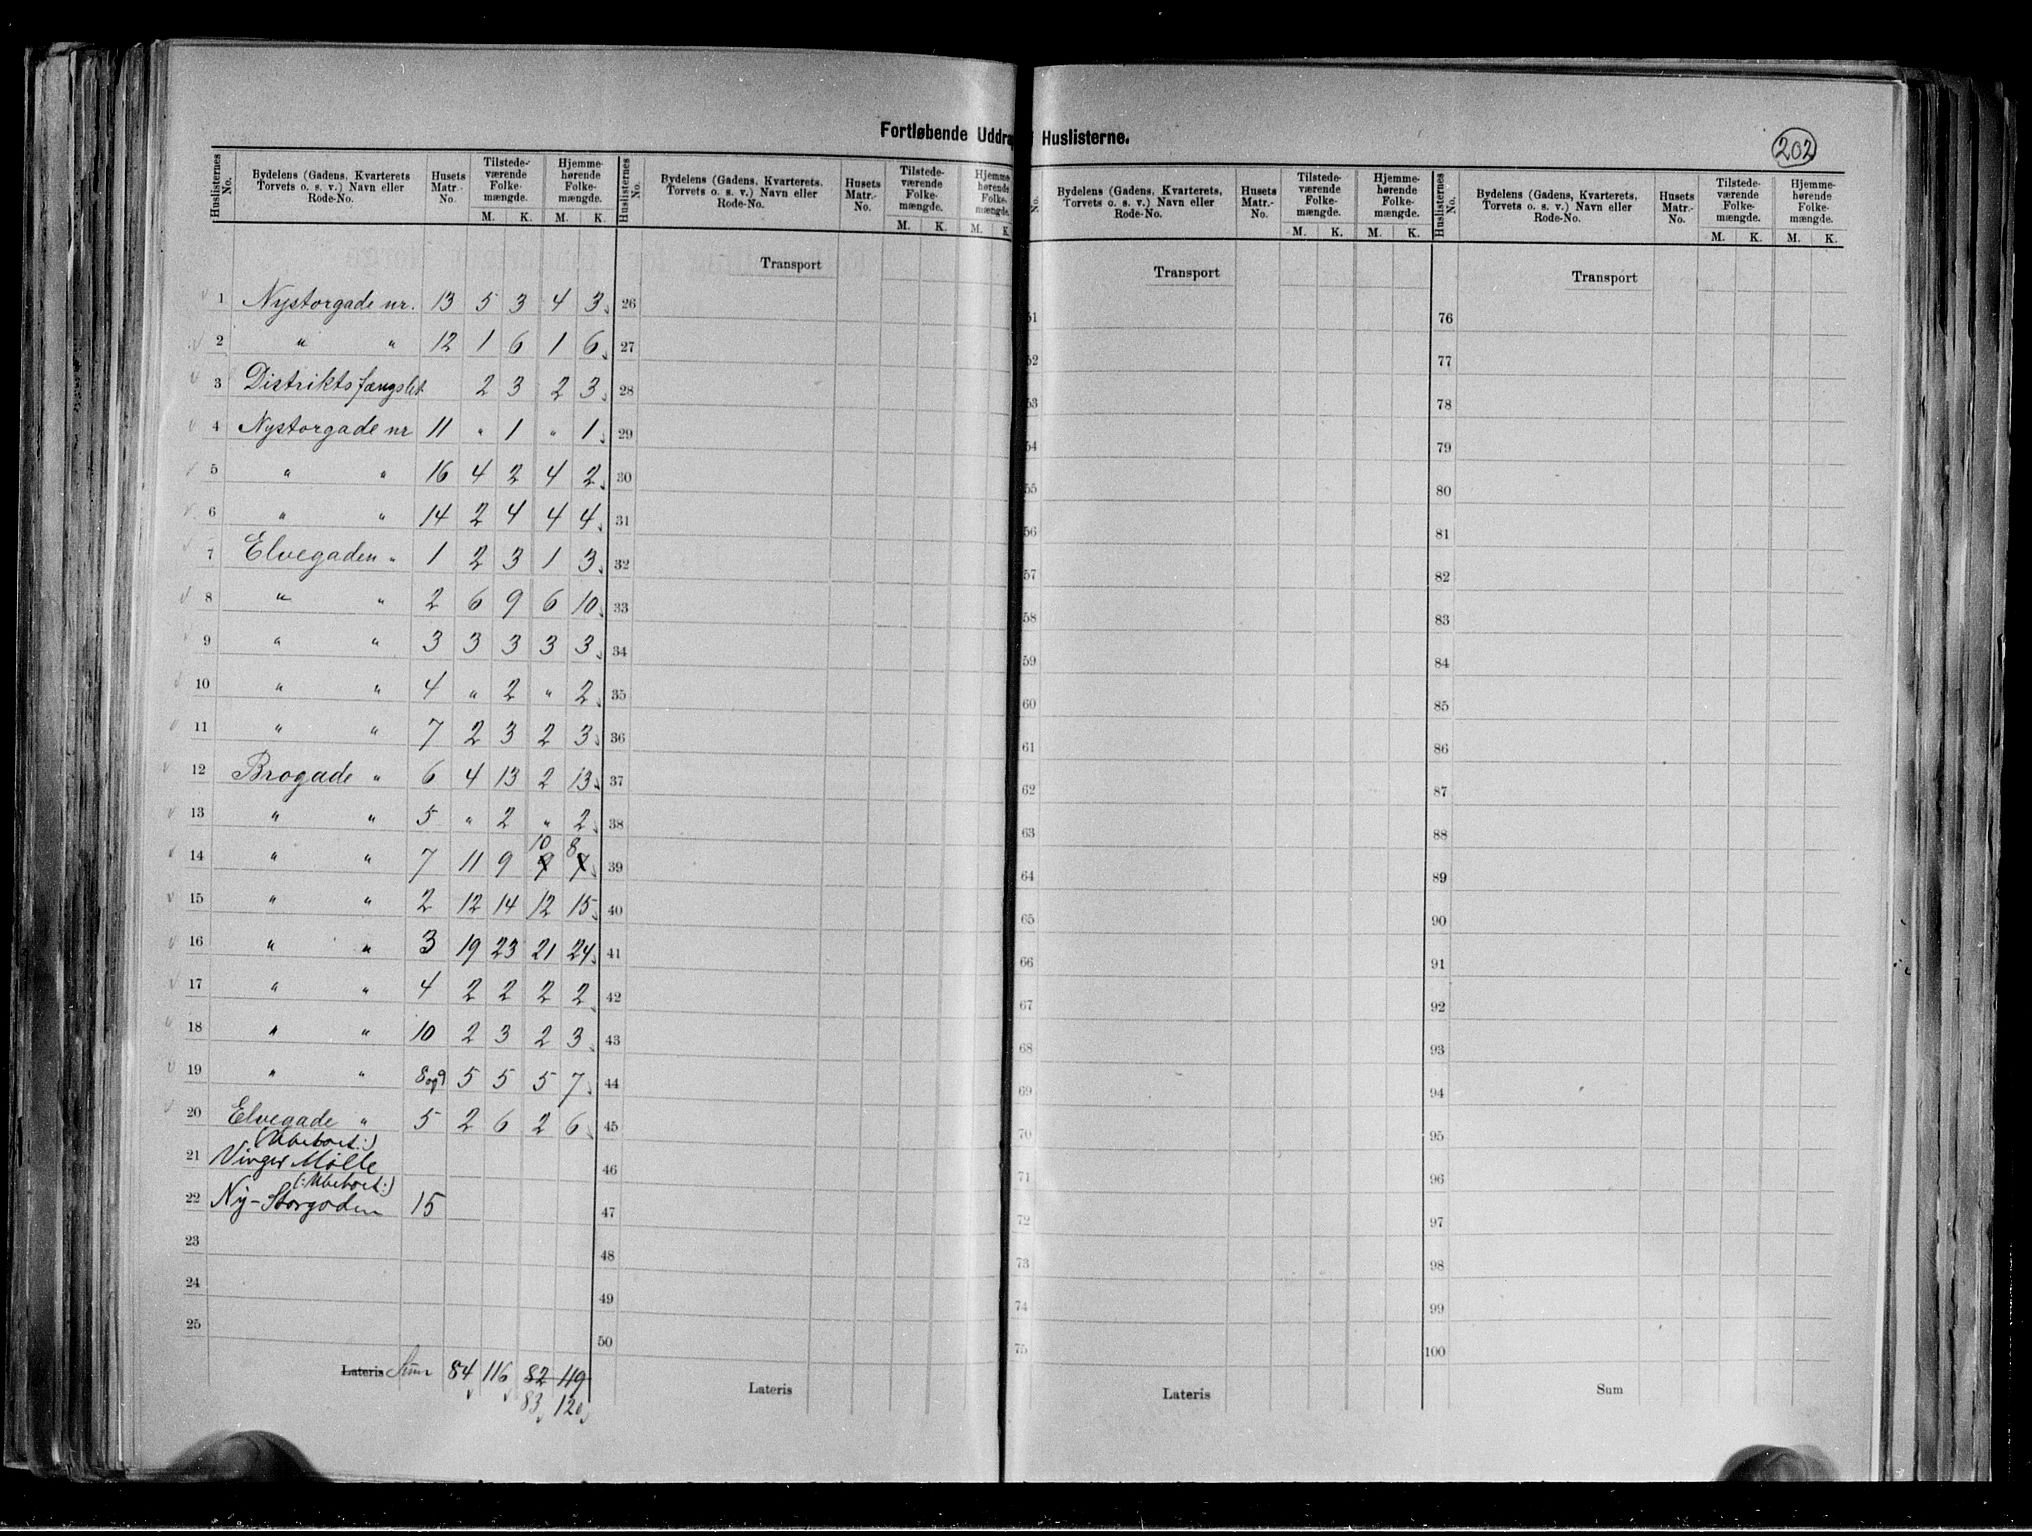 Fortløbende Uddra Huslisterne.
202
Huslisternes No.
Bydelens (Gadens, Kvarterets Torvets o. s. v.) Navn eller Rode-No.
Husets Matr.-No.
Tilstedeværende Folkemængde. M. K.
Hjemmehørende Folkemængde. M. K.
Huslisternes No.
Bydelens (Gadens, Kvarterets, Torvets o. s. v.) Navn eller Rode-No.
Husets Matr.-No.
Tilstedeværende Folkemængde. M. K.
Hjemmehørende Folkemængde. M. K
No.
Bydelens (Gadens, Kvarterets, Torvets o. s. v.) Navn eller Rode-No.
Husets Matr.-No.
Tilstedeværende Folkemængde. M. K.
Hjemmehørende Folkemængde. M. K.
Huslisternes No.
Bydelens (Gadens, Kvarterets, Torvets o. s. v.) Navn eller Rode-No.
Husets Matr.-No.
Tilstedeværende Folkemængde. M. K.
Hjemmehørende Folkemængde. M. K.
Transport Transport Transport
1 Nystorgade nr. 13 5 3 4 3 26 51 76
2 " " 12 1 6 1 6 27 52 77
3 Distriktsfængslet 2 3 2 3 28 53 78
4 Nystorgade nr 11 " 1 " 1 29 54 79
5 " " 16 4 2 4 2 30 55 80
6 " " 14 2 4 4 4 31 56 81
7 Elvegaden " 1 2 3 1 3 32 57 82
8 " " 2 6 9 6 10 33 58 83
9 " " 3 3 3 3 3 34 59 84
10 " " 4 " 2 " 2 35 60 85
11 " " 7 2 3 2 3 36 61 86
12 Brogade " 6 4 13 2 13 37 62 87
13 " " 5 " 2 " 2 38 63 88
10 8
14 " " 7 11 9 9 7 39 64 89
15 " " 2 12 14 12 15 40 65 90
16 " " 3 19 23 21 24 41 66 91
17 " " 4 2 2 2 2 42 67 92
18 " " 10 2 3 2 3 43 68 93
19 " " 8 og 9 5 5 5 7 44 69 94
20 Elvegade " 5 2 6 2 6 45 70 95
(Ubeboet:)
21 Vinger Mølle 46 71 96
(:Ubeboet:)
22 Ny-Storgaden 15 47 72 97
23 48 73 98
24 49 74 99
25 50 75 100
Lateris Sum 84 116 82 119 Lateris Lateris Sum
83 120